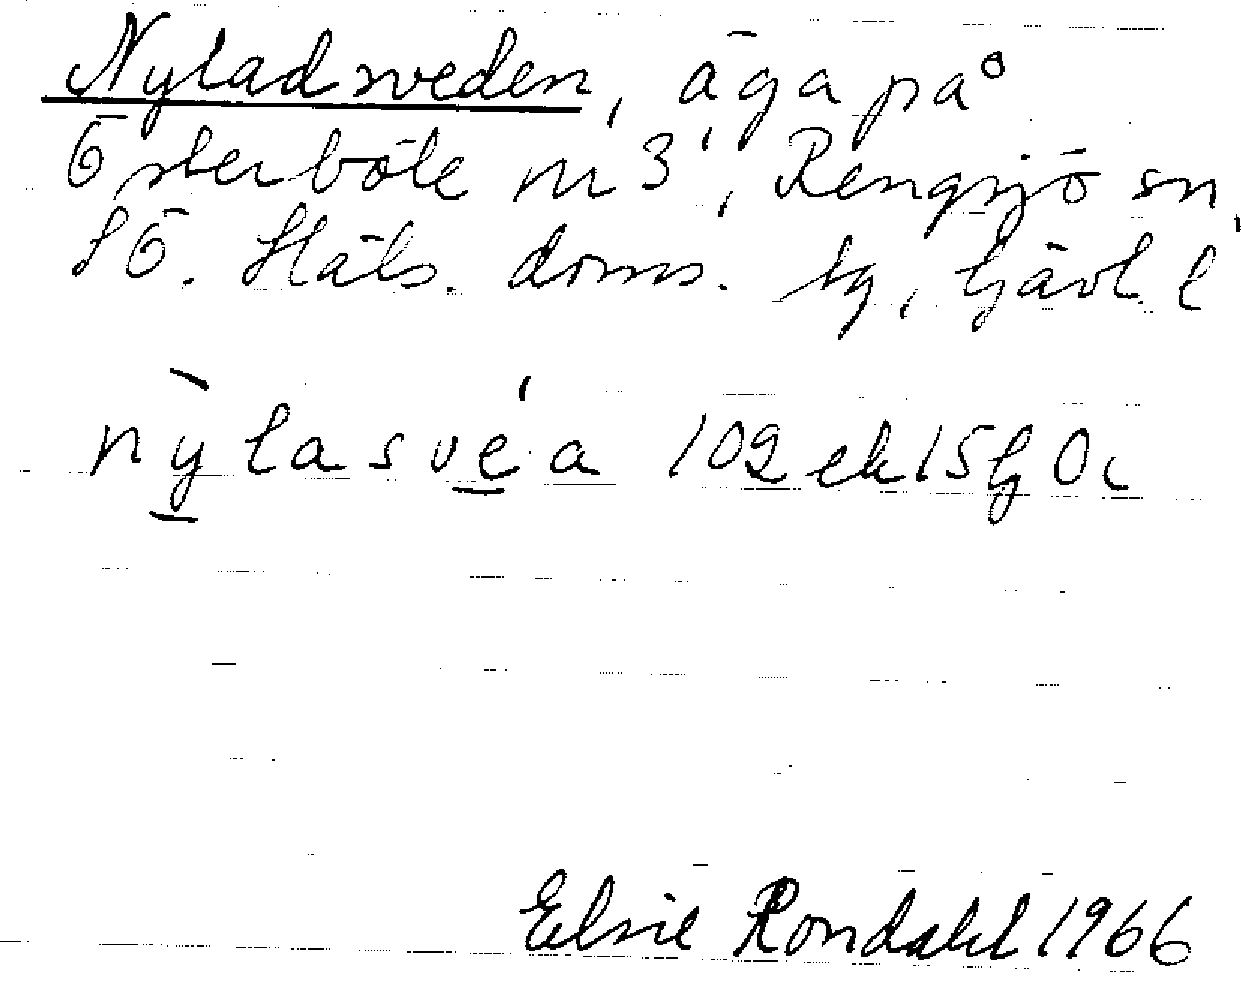 Nyladsveden, äga på
Österböle nr 3, Rengsjö sn,
SÖ. Häls. doms. tg, Gävl. l
nỳlasvé̱a 102 ek 15 g Öc
Elsie Rondahl 1966